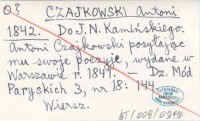 O? CZAJKOWSKI Antoni
1842. Do J.N. Kamińskiego.
Antoni Czajkowski posyłając
mu swoje poezyje, wydane w
Warszawie r. 1841. — Dz. Mód
Paryskich 3, nr 18: 144
Wiersz.